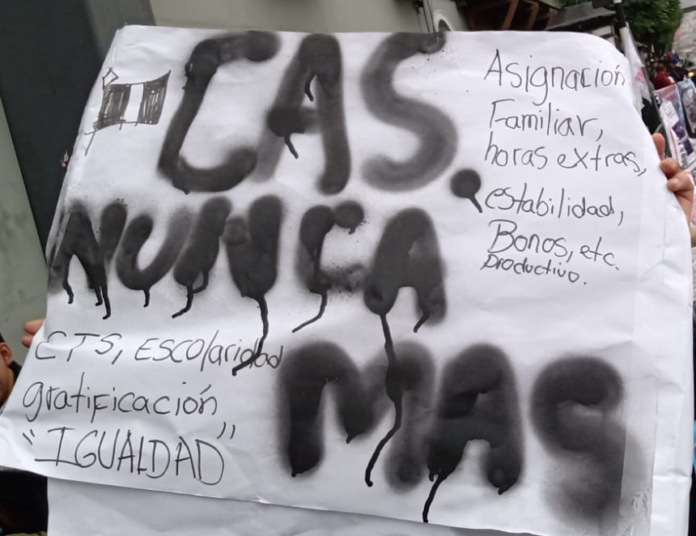 CAS.
NUNCA
MAS
Asignación
Familiar,
horas extras,
estabilidad,
Bonos, etc.
productivo.
CTS, ESCOlaridad
gratificación
"IGUALDAD"